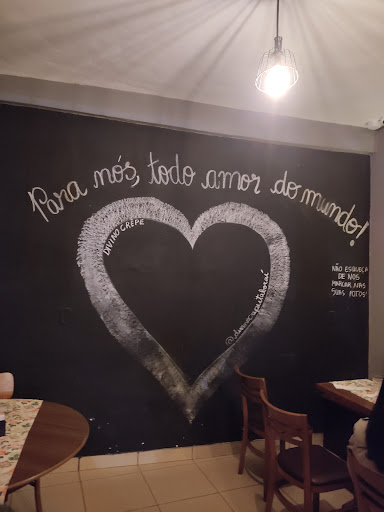 Para nós, todo amor do mundo!
DIVINO CRÊPE
@divinocrepeitaborai
NÃO ESQUEÇA
DE NOS
MARCAR NAS
SUAS FOTOS!